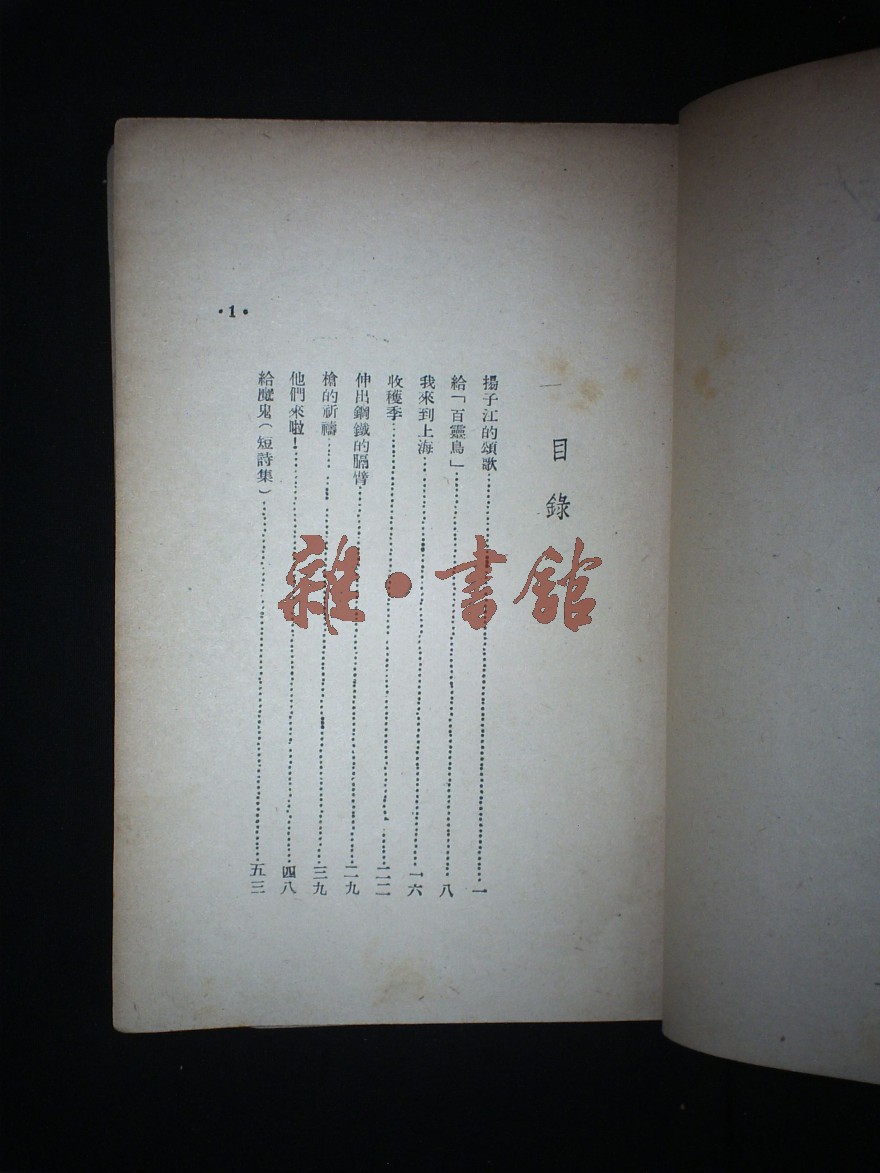 目錄
揚子江的頌歌………一
給「百靈鳥」………八
我來到上海………一六
收穫季………二二
伸出鋼鐵的膈臂………二九
槍的祈禱………三九
他們來啦！………四八
給魔鬼(短詩集)………五三
•1•
雜•書館